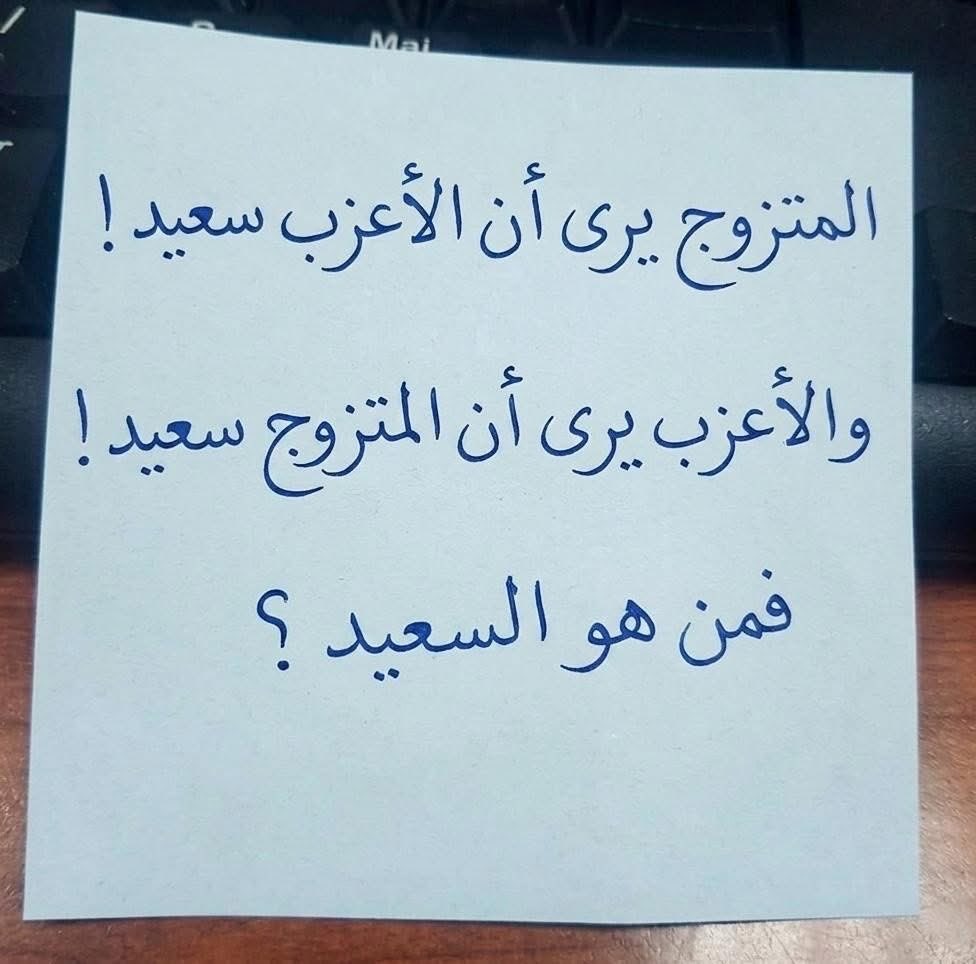 Mai
المتزوج يرى أن الأعزب سعيد !
والأعزب يرى أن المتزوج سعيد !
فمن هو السعيد ؟